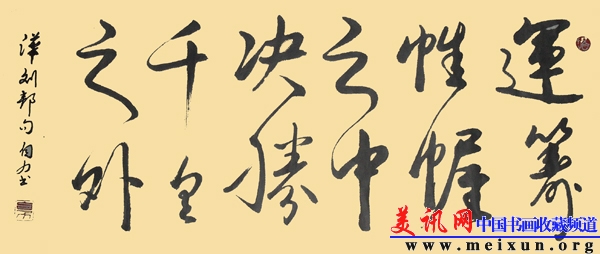 運籌
帷幄
之中
决勝
千里
之外
漢刘邦句
美讯网 中国书画收藏频道
www.meixun.org